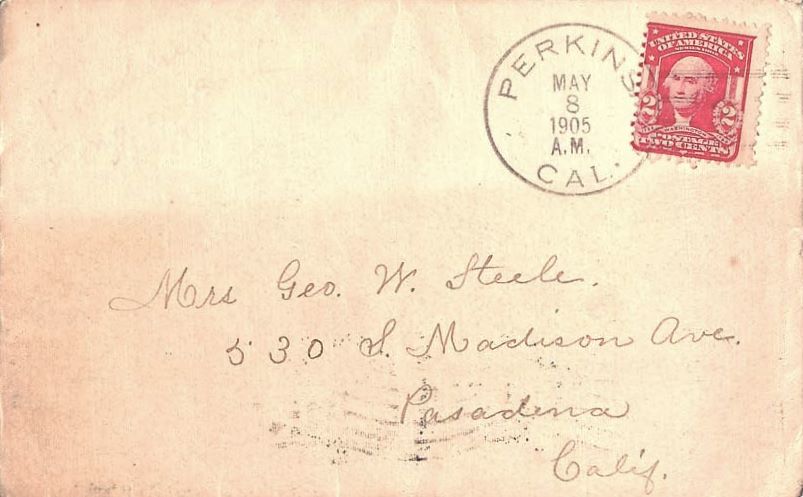 PERKINS
MAY
8
1905
A.M.
CAL.
UNITED STATES
OF AMERICA
2 2
WASHINGTON
POSTAGE
TWO CENTS
Mrs Geo. W. Steele.
530 S. Madison Ave.
Pasadena
Calif.